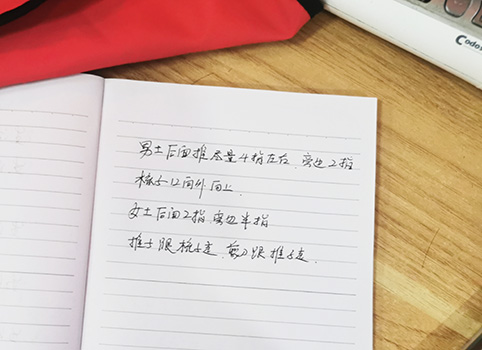 男士后面推尽量4指左右,旁边2指
梳子以向外向上.
女士后面2指,旁边半指
推子跟梳子走,剪刀跟推子走.